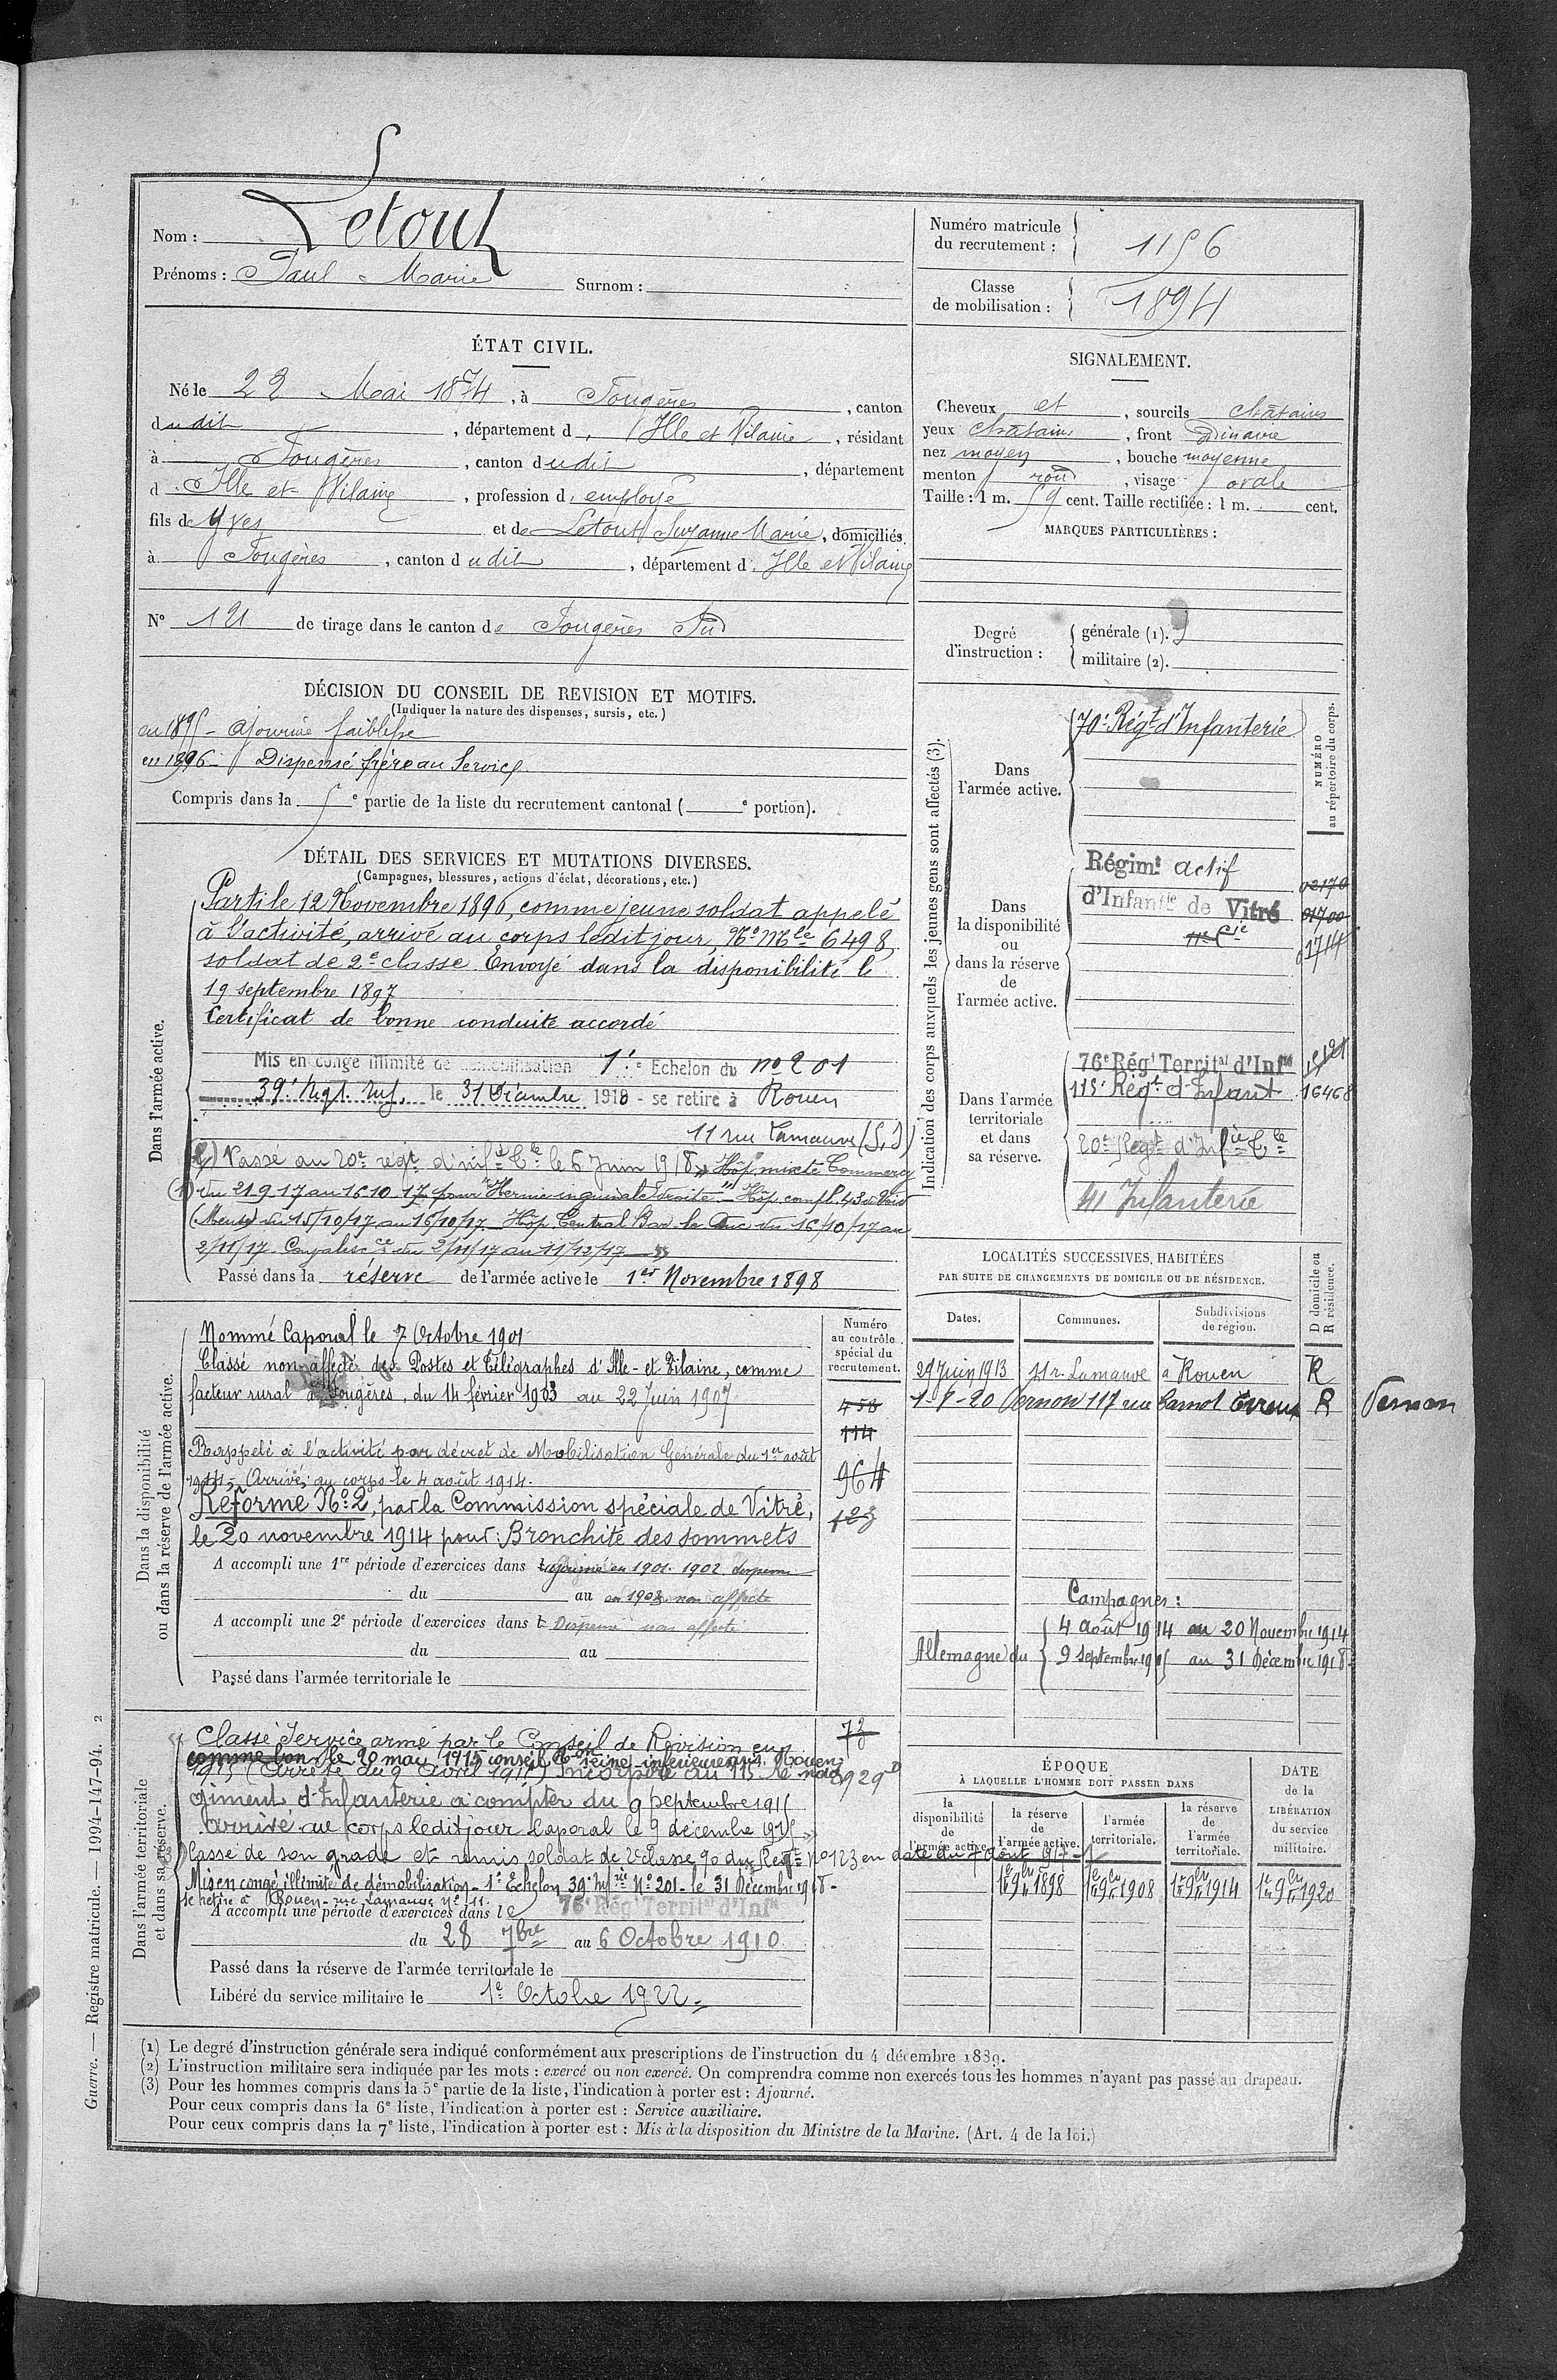 Nom : Letout
Prénoms : Paul Marie Surnom :
Numéro matricule du recrutement : 1156
Classe de mobilisation : 1894
ÉTAT CIVIL.
Né le 22 Mai 1874, à Fougères, canton
dudit, département d Ille et Vilaine, résidant
à Fougères, canton dudit, département
d Ille et Vilaine, profession d employé
fils de Yves et de Letout Suzanne Marie, domiciliés
à Fougères, canton dudit, département d Ille et Vilaine
N° 121 de tirage dans le canton de Fougères Sud
SIGNALEMENT.
Cheveux et, sourcils châtains
yeux châtains, front ordinaire
nez moyen, bouche moyenne
menton rond, visage ovale
Taille : 1 m. 59 cent. Taille rectifiée : 1 m. cent.
MARQUES PARTICULIÈRES :
Degré d'instruction :
générale (1).
militaire (2).
DÉCISION DU CONSEIL DE REVISION ET MOTIFS.
(Indiquer la nature des dispenses, sursis, etc.)
en 1895 - ajourné faiblesse
en 1896 - Dispensé frère au Service
Compris dans la 5e partie de la liste du recrutement cantonal ( e portion).
DÉTAIL DES SERVICES ET MUTATIONS DIVERSES.
(Campagnes, blessures, actions d'éclat, décorations, etc.)
Dans l'armée active.
Parti le 12 Novembre 1896, comme jeune soldat appelé
à l'activité, arrivé au corps ledit jour, No Mle 6498,
soldat de 2e classe. Envoyé dans la disponibilité le
19 septembre 1897
Certificat de bonne conduite accordé
Mis en congé illimité de démobilisation 1e Echelon du no 201
39e Regt. Inf. le 31 Décembre 1918 - se retire à Rouen
11 rue Lamauve (S.I)
(2) Passé au 20e régt d'infie Cle le 6 Juin 1918 » Hôp. mixte Commercy
(1) du 21 9 17 au 16 10 17 pour "Hernie inguinale droite" - Hôp. compl. 43 à Void
(Meuse) du 15/10/17 au 16/10/17 - Hôp. Central Bar le Duc du 16/10/17 au
2/11/17. Convalescce du 2/11/17 au 11/12/17 »
Passé dans la réserve de l'armée active le 1er Novembre 1898
Indication des corps auxquels les jeunes gens sont affectés (3).
NUMÉRO au répertoire du corps.
Dans l'armée active.
70e Régt d'Infanterie
Dans la disponibilité ou dans la réserve de l'armée active.
Régimt actif 02170
d'Infantie de Vitré 01700
11e Cie 01714
Dans l'armée territoriale et dans sa réserve.
76e Régt Territal d'Infie
115e Régt d'Infant 16468
20e Regt d'Infie Cle
41 Infanterie
Dans la disponibilité ou dans la réserve de l'armée active.
Numéro au contrôle spécial du recrutement.
Nommé Caporal le 7 Octobre 1901
Classé non affecté des Postes et Télégraphes d'Ille-et-Vilaine, comme
facteur rural à Fougères, du 14 février 1903 au 22 Juin 1907
Rappelé à l'activité par décret de Mobilisation Générale du 1er août
1914, Arrivé au corps le 4 août 1914.
Réforme No 2, par la Commission spéciale de Vitré,
le 20 novembre 1914 pour : Bronchite des sommets
458
114
964
123
A accompli une 1re période d'exercices dans ajourné en 1901. 1902 dispensé
du au en 1903 non affecté
A accompli une 2e période d'exercices dans l Dispensé non affecté
du au
Passé dans l'armée territoriale le
LOCALITÉS SUCCESSIVES HABITÉES
PAR SUITE DE CHANGEMENTS DE DOMICILE OU DE RÉSIDENCE.
D domicile ou R résidence.
Dates. Communes. Subdivisions de région.
29 Juin 1913 11 r. Lamauve à Rouen R
1-8-20 Vernon 117 rue Carnot Evreux R Vernon
Campagnes :
Allemagne du 4 août 1914 au 20 Novembre 1914
9 septembre 1915 au 31 Décembre 1918
Dans l'armée territoriale et dans sa réserve.
Classé Service armé par le Conseil de Révision en 73
comme bon le 20 mai 1915 conseil Seine-inférieure Rouen
1915 (arrêté du 9 avril 1915) Incorporé au 115 Ré 8929
giment d'Infanterie à compter du 9 septembre 1915
arrivé au corps ledit jour Caporal le 9 décembre 1915 »
Cassé de son grade et remis soldat de 2e classe 90 du Regt No 123 en date du 7 août 917
Mis en congé illimité de démobilisation - 1e Echelon 39e Infie No 201 - le 31 Décembre 1918 -
se retire à Rouen - rue Lamauve No 11.
A accompli une période d'exercices dans le 76e Régt Territal d'Infie
du 28 7bre au 6 Octobre 1910
Passé dans la réserve de l'armée territoriale le
Libéré du service militaire le 1e Octobre 1922
ÉPOQUE
À LAQUELLE L'HOMME DOIT PASSER DANS
DATE de la LIBÉRATION du service militaire.
la disponibilité de l'armée active. la réserve de l'armée active. l'armée territoriale. la réserve de l'armée territoriale.
1er 9bre 1898 1er 9bre 1908 1er 9bre 1914 1er 9bre 1920
(1) Le degré d'instruction générale sera indiqué conformément aux prescriptions de l'instruction du 4 décembre 1889.
(2) L'instruction militaire sera indiquée par les mots : exercé ou non exercé. On comprendra comme non exercés tous les hommes n'ayant pas passé au drapeau.
(3) Pour les hommes compris dans la 5e partie de la liste, l'indication à porter est : Ajourné.
Pour ceux compris dans la 6e liste, l'indication à porter est : Service auxiliaire.
Pour ceux compris dans la 7e liste, l'indication à porter est : Mis à la disposition du Ministre de la Marine. (Art. 4 de la loi.)
Guerre. — Registre matricule. — 1994-147-94. 2